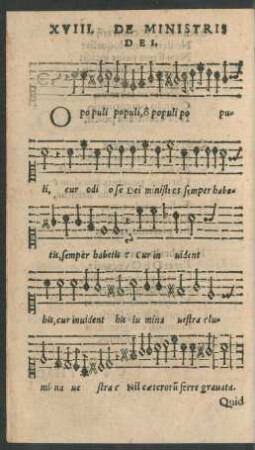 XVIII. DE MINISTRIS
DEI.
O populi populi, ô populi po pu-
li, cur odi ose Dei ministros semper habe-
tis, semper habetis? Cur in uident
his, cur inuident his lu mina uestra elu-
mi na ue stra? Nil cæterorũ ferre grauata.
Quid